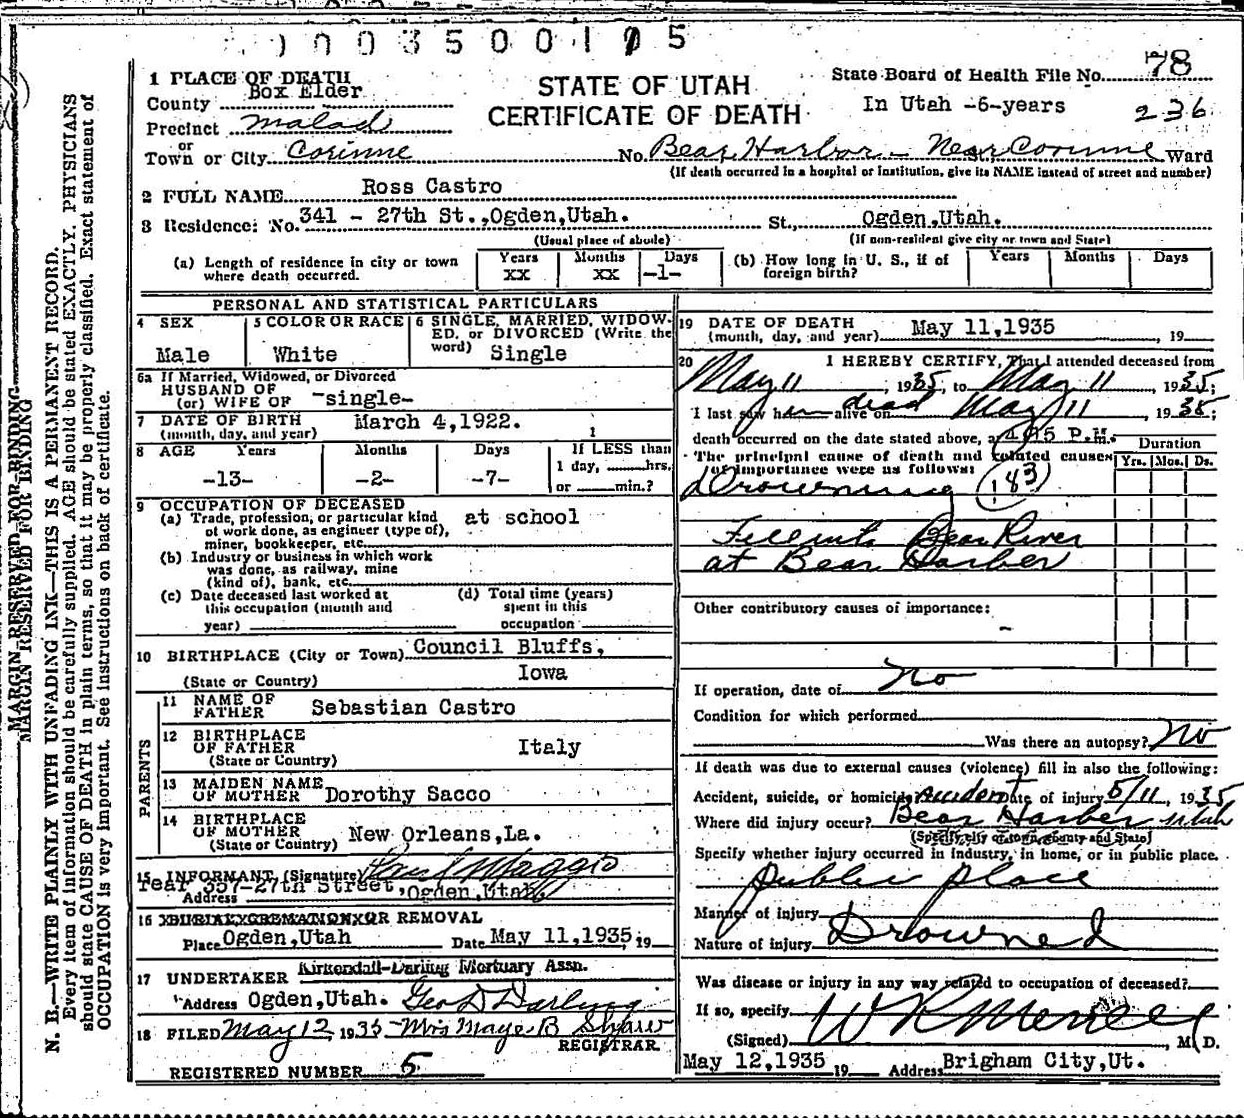 0003500115
1 PLACE OF DEATH
County Box Elder
STATE OF UTAH
CERTIFICATE OF DEATH
State Board of Health File No. 78
In Utah -6-years 236
Precinct Malad
or
Town or City Corinne No. Bear Harbor - Near Corinne Ward
(If death occurred in a hospital or institution, give its NAME instead of street and number)
2 FULL NAME Ross Castro
3 Residence: No. 341 - 27th St.,Ogden,Utah. St., Ogden,Utah.
(Usual place of abode) (If non-resident give city or town and State)
(a) Length of residence in city or town where death occurred. Years xx Months xx Days -1-
(b) How long in U. S., if of foreign birth? Years Months Days
PERSONAL AND STATISTICAL PARTICULARS
4 SEX Male
5 COLOR OR RACE White
6 SINGLE, MARRIED, WIDOWED, or DIVORCED (Write the word) Single
6a If Married, Widowed, or Divorced
HUSBAND OF
(or) WIFE OF -single-
7 DATE OF BIRTH
(month, day, and year) March 4,1922.
8 AGE Years -13- Months -2- Days -7-
If LESS than 1
1 day, hrs.
or min.?
9 OCCUPATION OF DECEASED
(a) Trade, profession, or particular kind of work done, as engineer (type of), miner, bookkeeper, etc. at school
(b) Industry or business in which work was done, as railway, mine (kind of), bank, etc.
(c) Date deceased last worked at this occupation (month and year)
(d) Total time (years) spent in this occupation
10 BIRTHPLACE (City or Town) Council Bluffs,
(State or Country) Iowa
PARENTS
11 NAME OF FATHER Sebastian Castro
12 BIRTHPLACE OF FATHER (State or Country) Italy
13 MAIDEN NAME OF MOTHER Dorothy Sacco
14 BIRTHPLACE OF MOTHER (State or Country) New Orleans,La.
15 INFORMANT, (Signature) Maggio
Address rear 357-27th Street,Ogden,Utah
16 BURIAL, CREMATION OR REMOVAL
Place Ogden,Utah Date May 11,1935, 19
17 UNDERTAKER Kirkendall-Darling Mortuary Assn.
Address Ogden,Utah. Geo D Darling
18 FILED May 12, 1935 Mrs Maye B Shaw
REGISTRAR.
REGISTERED NUMBER 5
19 DATE OF DEATH
(month, day, and year) May 11,1935 , 19
20 I HEREBY CERTIFY, That I attended deceased from
May 11, 1935, to May 11, 1935;
I last saw h alive on dead May 11, 1935;
death occurred on the date stated above, at 4:15 P.M.
The principal cause of death and related causes of importance were as follows:
Duration
Yrs. Mos. Ds.
Drowning (183)
Fell into Bear River
at Bear Harber
Other contributory causes of importance:
-
If operation, date of No
Condition for which performed
Was there an autopsy? No
If death was due to external causes (violence) fill in also the following:
Accident, suicide, or homicide? Accident Date of injury 5/11, 1935
Where did injury occur? Bear Harber Utah
(Specify city or town, county and State)
Specify whether injury occurred in industry, in home, or in public place.
Public place
Manner of injury
Nature of injury Drowned
Was disease or injury in any way related to occupation of deceased?
If so, specify
(Signed) W R Merrell, M. D.
May 12,1935 19 Address Brigham City,Ut.
MARGIN RESERVED FOR BINDING
MARGIN RESERVED FOR BINDING
N. B.—WRITE PLAINLY WITH UNFADING INK—THIS IS A PERMANENT RECORD.
Every item of information should be carefully supplied. AGE should be stated EXACTLY. PHYSICIANS
should state CAUSE OF DEATH in plain terms, so that it may be properly classified. Exact statement of
OCCUPATION is very important. See instructions on back of certificate.